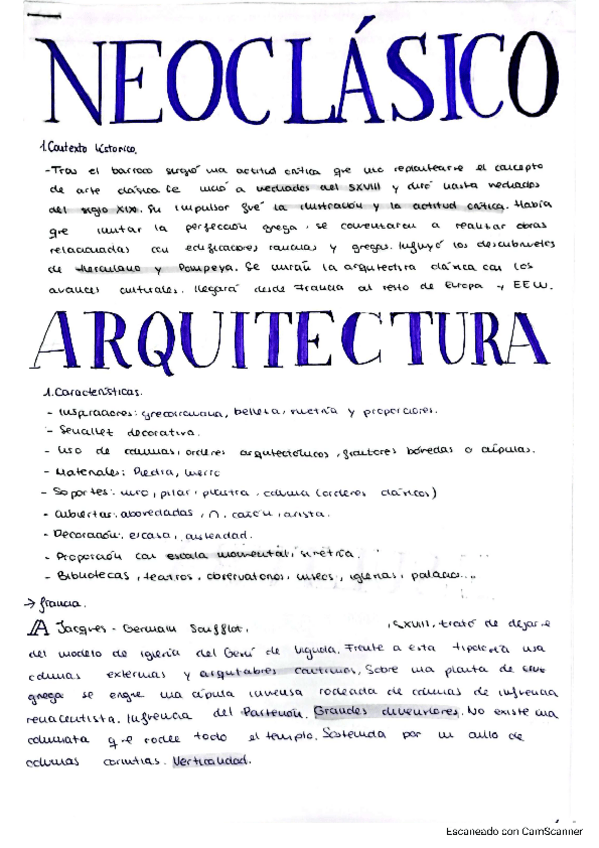 NEOCLÁSICO
1.Contexto histórico.
-Tras el barroco surgió una actitud crítica que hizo replantearse el concepto
de arte clásico. Se inició a mediados del SXVIII y duró hasta mediados
del siglo XIX. Su impulsor fué la ilustración y la actitud crítica. Había
que imitar la perfección griega, se comenzaron a realizar obras
relacionadas con edificaciones romanas y griegas. Influyó los descubrimientos
de Herculano y Pompeya. Se unirán la arquitectura clásica con los
avances culturales. llegará desde Francia al resto de Europa y EEUU.
ARQUITECTURA
1.Características.
- Inspiraciones: grecorromana, belleza, simetría y proporciones.
- Sencillez decorativa.
- Uso de columnas, órdenes arquitectónicos, frontones bóvedas o cúpulas.
- Materiales: Piedra, hierro
- Soportes: muro, pilar, pilastra, columna (órdenes clásicos)
- Cubiertas: abovedadas, cañón, arista.
- Decoración: escasa, austeridad.
- Proporción con escala monumental, simetría.
- Bibliotecas, teatros, observatorios, museos, iglesias, palacios....
→ Francia.
A Jacques - Germain Soufflot. , SXVIII, trató de dejarse
del modelo de iglesia del Gesú de Vignola. Frente a esta tipología usa
columnas externas y arquitrabes continuos. Sobre una planta de cruz
griega se erige una cúpula inmensa rodeada de columnas de influencia
renacentista. Influencia del Partenón. Grandes dimensiones. No existe una
columnata que rodee todo el templo. Sostenida por un anillo de
columnas corintias. Verticalidad.
Escaneado con CamScanner